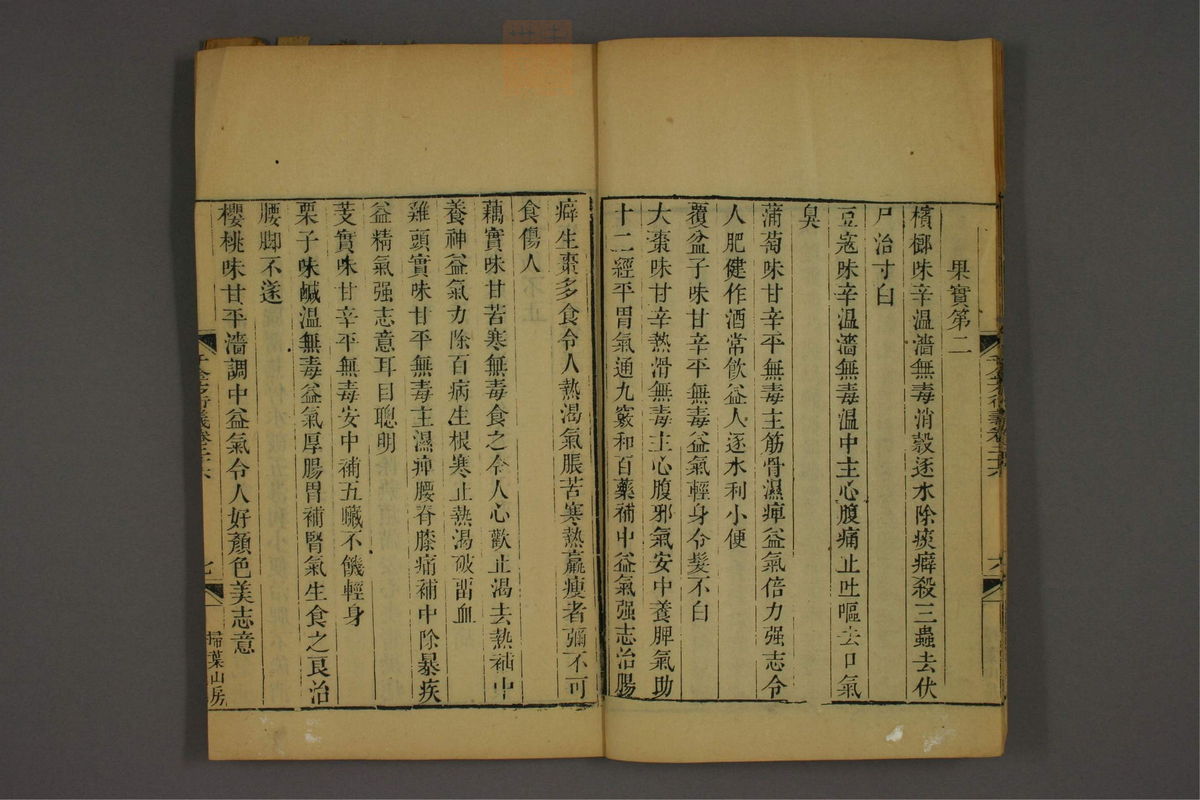 果實第二
檳榔味辛溫濇無毒消穀逐水除痰癖殺三蟲去伏
尸治寸白
豆寇味辛溫濇無毒溫中主心腹痛止吐嘔去口氣
臭
蒲萄味甘辛平無毒主筋骨濕痺益氣倍力强志令
人肥健作酒常飲益人逐水利小便
覆盆子味甘辛平無毒益氣輕身令髮不白
大棗味甘辛熱滑無毒主心腹邪氣安中養脾氣助
十二經平胃氣通九竅和百藥補中益氣强志治腸
癖生棗多食令人熱渴氣脹苦寒熱羸瘦者彌不可
食傷人
藕實味甘苦寒無毒食之令人心歡止渴去熱補中
養神益氣力除百病生根寒止熱渴破畱血
雞頭實味甘平無毒主濕痺腰脊膝痛補中除暴疾
益精氣强志意耳目聰明
芰實味甘辛平無毒安中補五臟不饑輕身
栗子味鹹溫無毒益氣厚腸胃補腎氣生食之良治
腰脚不遂
櫻桃味甘平濇調中益氣令人好顏色美志意
千金方衍義卷二十六
七
掃葉山房